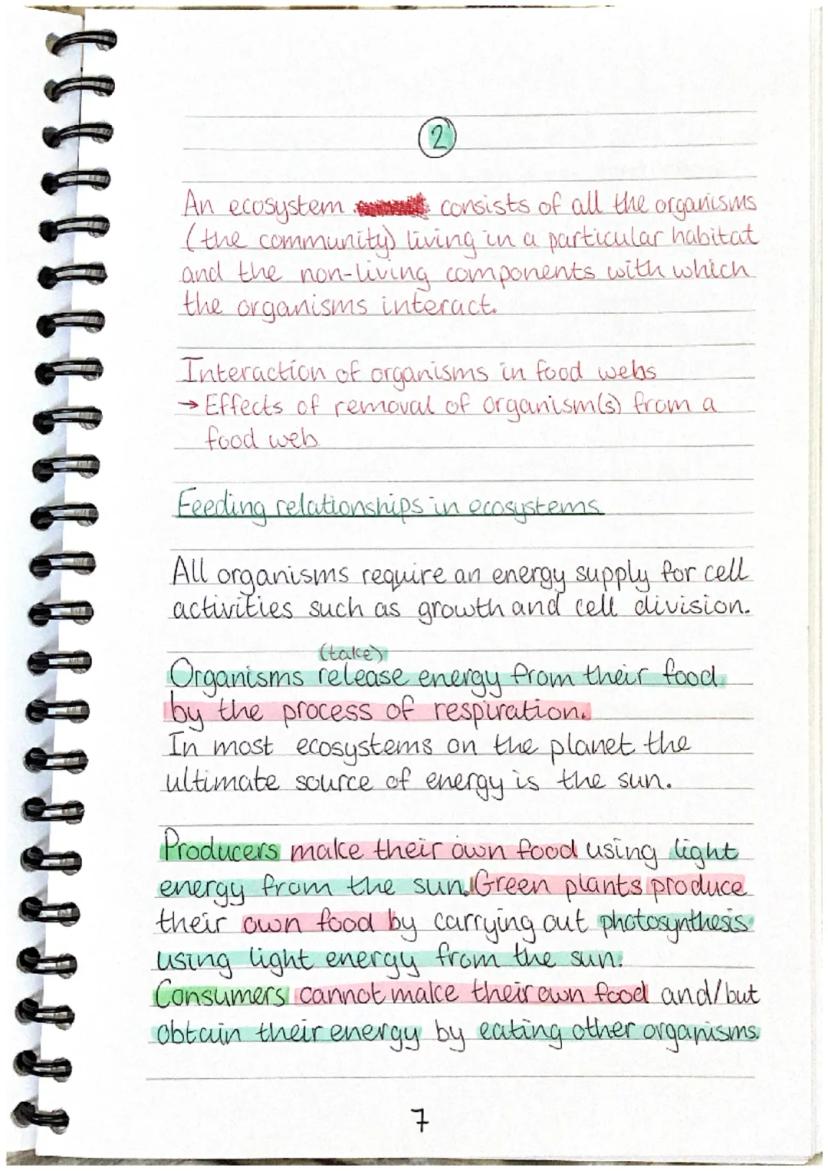 2
An ecosystem consists of all the organisms
(the community) living in a particular habitat
and the non-living components with which
the organisms interact.
Interaction of organisms in food webs
→ Effects of removal of organism(s) from a
food web
Feeding relationships in ecosystems
All organisms require an energy supply for cell
activities such as growth and cell division.
(take)
Organisms release energy from their food
by the process of respiration.
In most ecosystems on the planet the
ultimate source of energy is the sun.
Producers make their own food using light
energy from the sun. Green plants produce
their own food by carrying out photosynthesis
using light energy from the sun.
Consumers cannot make their own food and/but
obtain their energy by eating other organisms.
7